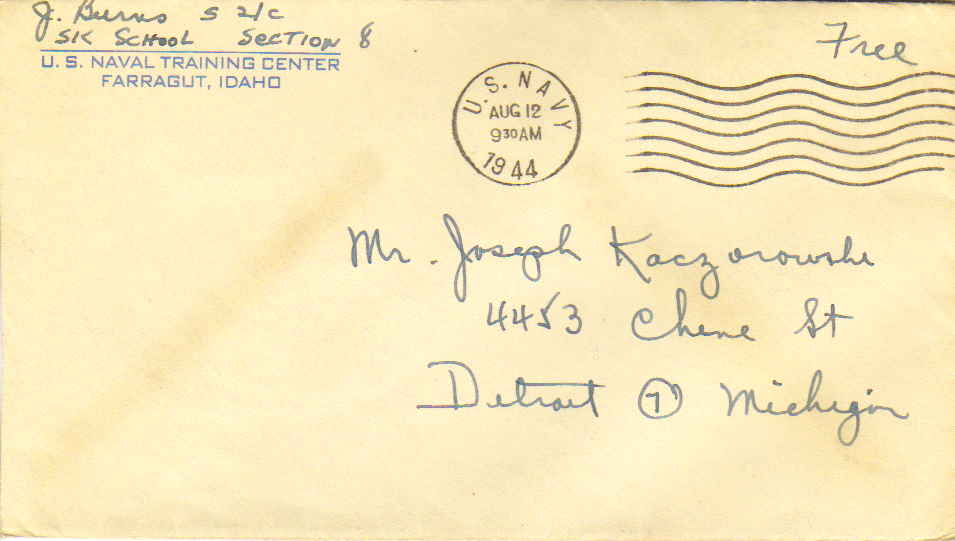 J. Burns S 2/C
SK School Section 8
U. S. NAVAL TRAINING CENTER
FARRAGUT, IDAHO
Free
U. S. NAVY
AUG 12
9 30 AM
1944
Mr. Joseph Kaczorowski
4453 Chene St
Detroit 7 Michigan